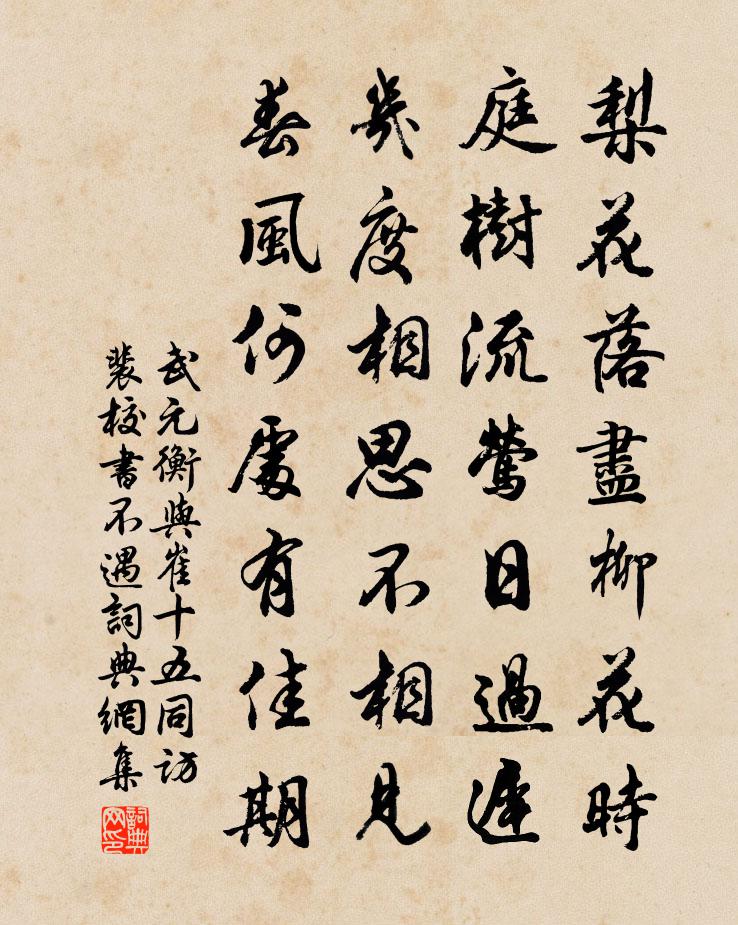 梨花落盡柳花時
庭樹流鶯日過遲
幾度相思不相見
春風何處有佳期
武元衡與崔十五同訪
裴校書不遇詞典網集
詞典
网印